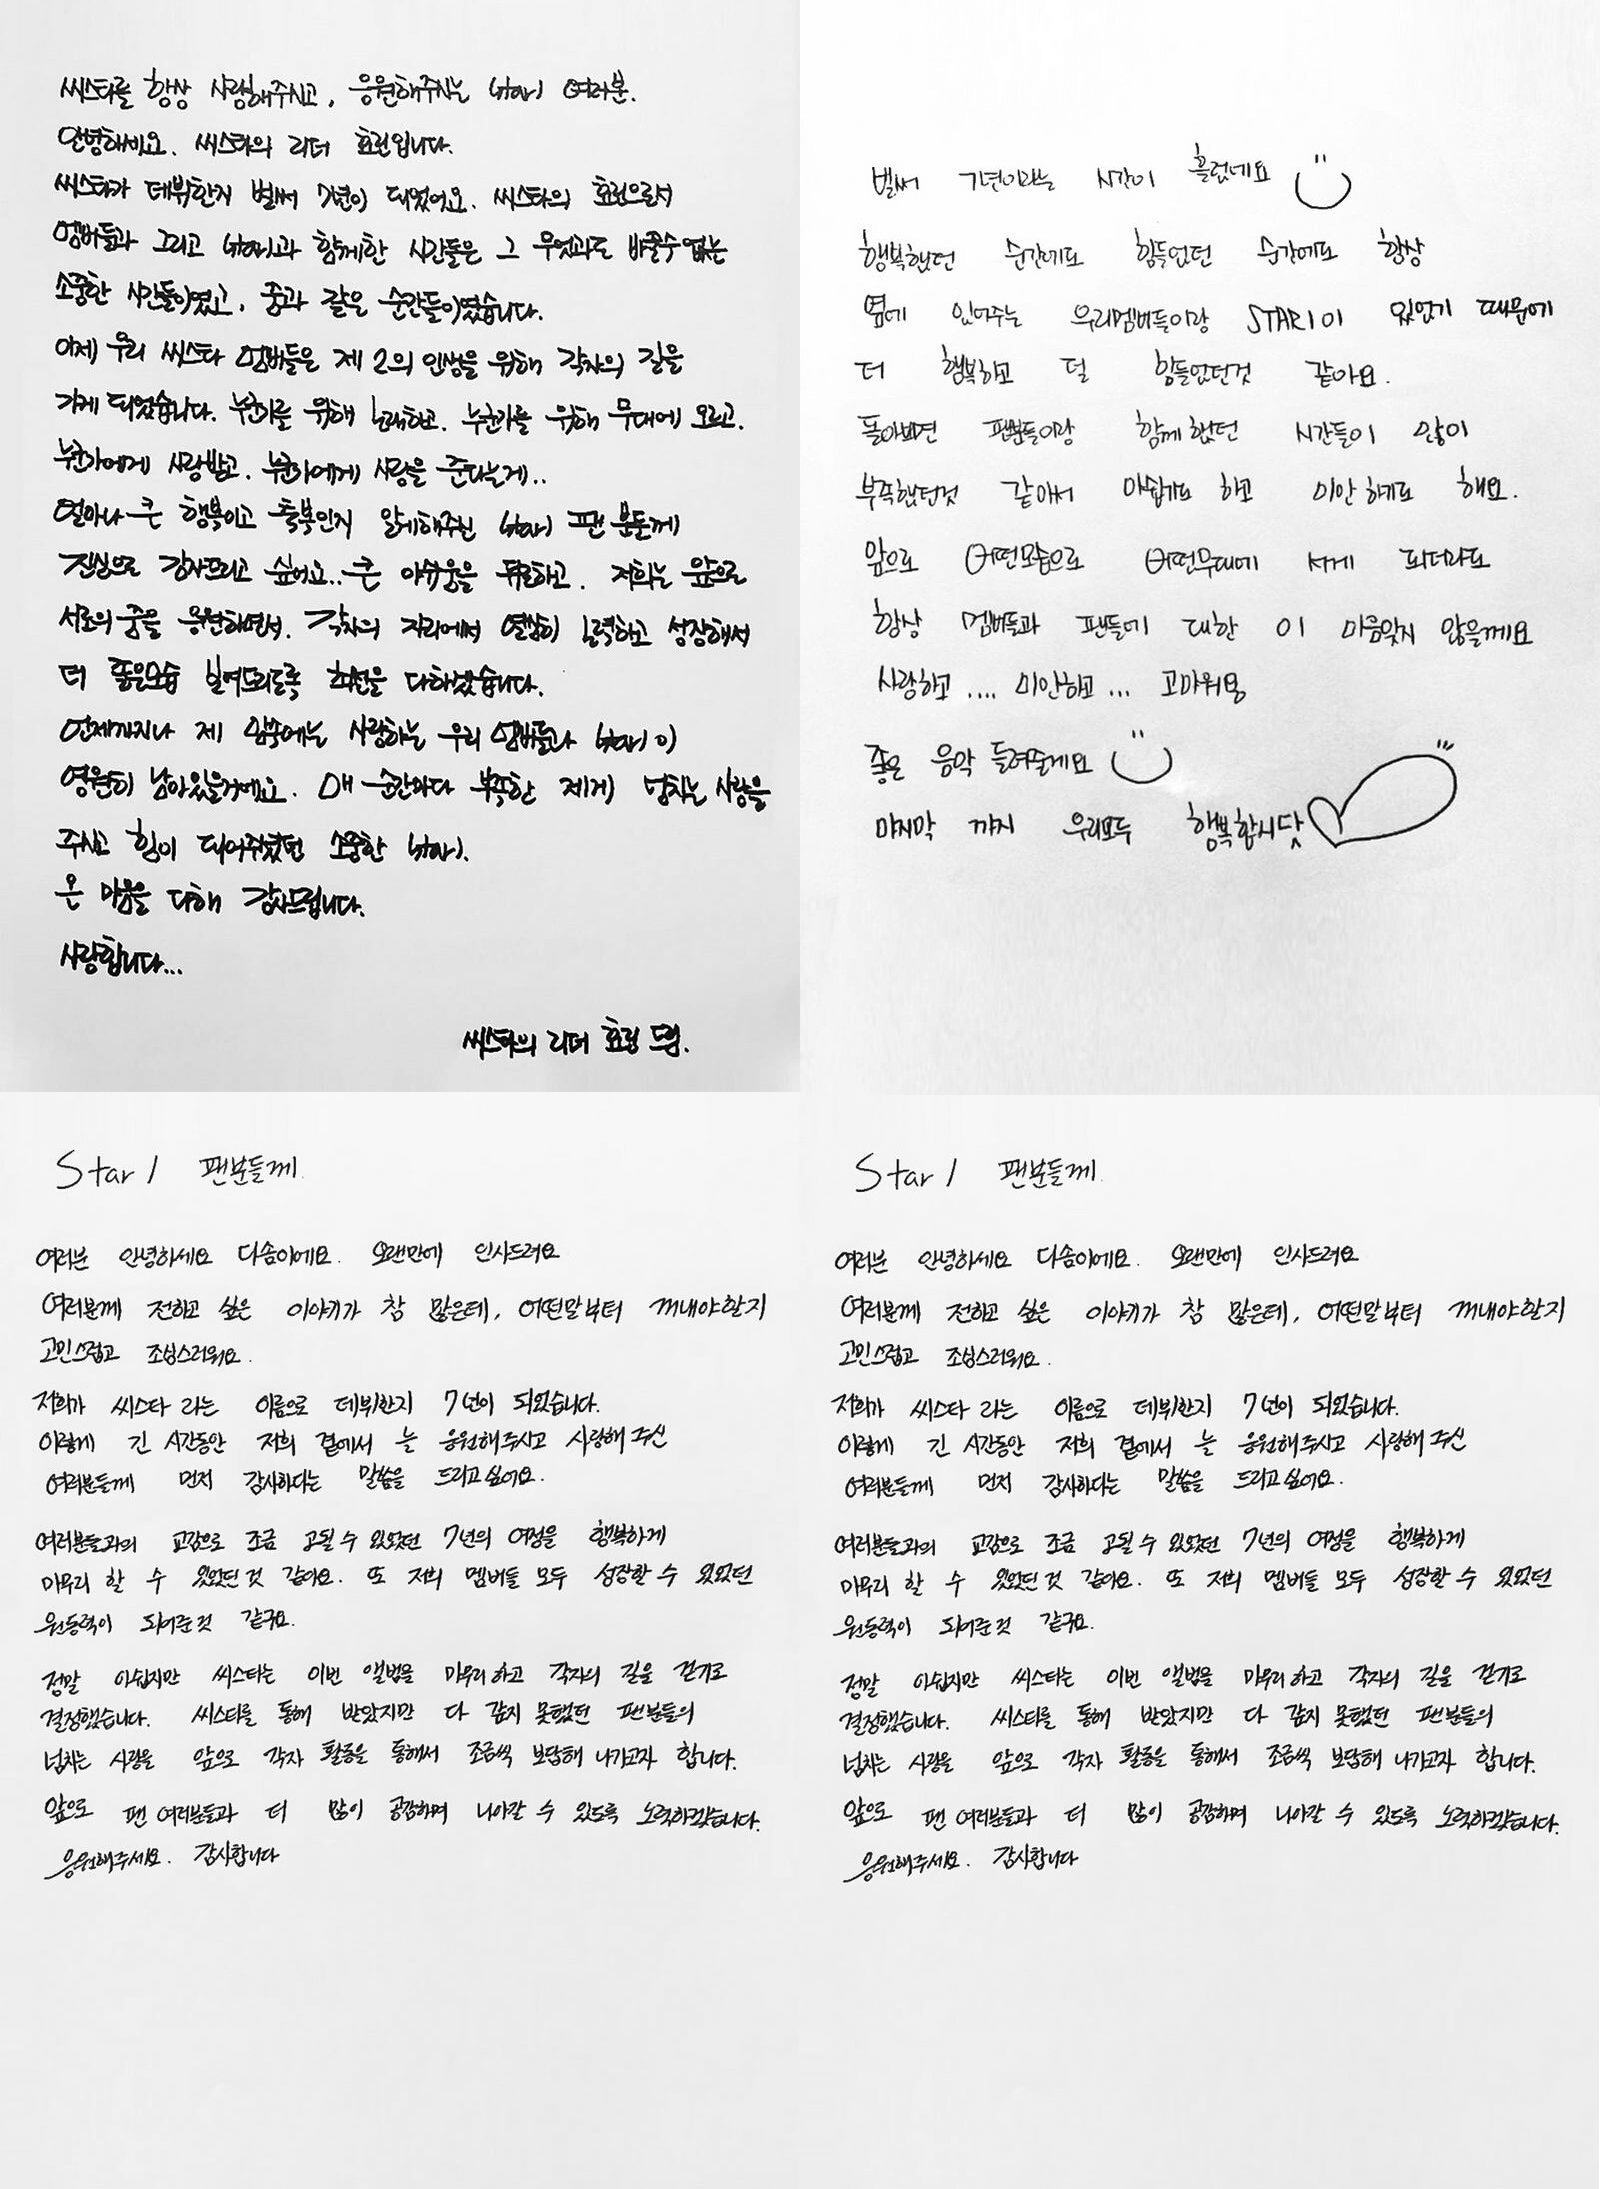 씨스타를 항상 사랑해주시고, 응원해주시는 star1 여러분.
안녕하세요. 씨스타의 리더 효린입니다.
씨스타가 데뷔한지 벌써 7년이 되었어요. 씨스타의 효린으로서
멤버들과 그리고 star1과 함께한 시간들은 그 무엇과도 바꿀수 없는
소중한 시간들이였고, 꿈과 같은 순간들이였습니다.
이제 우리 씨스타 멤버들은 제 2의 인생을 위해 각자의 길을
가게 되었습니다. 누군가를 위해 노래하고. 누군가를 위해 무대에 오르고.
누군가에게 사랑받고. 누군가에게 사랑을 준다는게..
얼마나 큰 행복이고 축복인지 알게해주신 star1 팬 분들께
진심으로 감사드리고 싶어요.. 큰 아쉬움을 뒤로하고. 저희는 앞으로
서로의 꿈을 응원하면서. 각자의 자리에서 열심히 노력하고 성장해서
더 좋은모습 보여드리도록 최선을 다하겠습니다.
언제까지나 제 맘속에는 사랑하는 우리 멤버들과 star1이
영원히 남아있을거에요. 매 순간마다 부족한 제게 넘치는 사랑을
주시고 힘이 되어주셨던 소중한 star1.
온 마음을 다해 감사드립니다.
사랑합니다...
씨스타의 리더 효린 드림.
벌써 7년이라는 시간이 흘렀네요
행복했던 순간에도 힘들었던 순간에도 항상
옆에 있어주는 우리멤버들이랑 STAR1이 있었기 때문에
더 행복하고 덜 힘들었던것 같아요.
돌아보면 팬분들이랑 함께했던 시간들이 많이
부족했던것 같아서 아쉽기도 하고 미안하기도 해요.
앞으로 어떤모습으로 어떤무대에 서게 되더라도
항상 멤버들과 팬들에 대한 이 마음잊지 않을께요
사랑하고 .... 미안하고 ... 고마워용
좋은 음악 들려줄게요
마지막 까지 우리모두 행복합시닷
Star1 팬분들께.
여러분 안녕하세요 다솜이에요. 오랜만에 인사드려요
여러분께 전하고 싶은 이야기가 참 많은데, 어떤말부터 꺼내야할지
고민스럽고 조심스러워요.
저희가 씨스타 라는 이름으로 데뷔한지 7년이 되었습니다.
이렇게 긴 시간동안 저희 곁에서 늘 응원해주시고 사랑해 주신
여러분들께 먼저 감사하다는 말씀을 드리고싶어요.
여러분들과의 교감으로 조금 고될 수 있었던 7년의 여정을 행복하게
마무리 할 수 있었던것 같아요. 또 저희 멤버들 모두 성장할 수 있었던
원동력이 되어준것 같구요.
정말 아쉽지만 씨스타는 이번 앨범을 마무리하고 각자의 길을 걷기로
결정했습니다. 씨스타를 통해 받았지만 다 갚지 못했던 팬분들의
넘치는 사랑을 앞으로 각자 활동을 통해서 조금씩 보답해 나가고자 합니다.
앞으로 팬 여러분들과 더 많이 공감하며 나아갈 수 있도록 노력하겠습니다.
응원해주세요. 감사합니다
Star1 팬분들께.
여러분 안녕하세요 다솜이에요. 오랜만에 인사드려요
여러분께 전하고 싶은 이야기가 참 많은데, 어떤말부터 꺼내야할지
고민스럽고 조심스러워요.
저희가 씨스타 라는 이름으로 데뷔한지 7년이 되었습니다.
이렇게 긴 시간동안 저희 곁에서 늘 응원해주시고 사랑해 주신
여러분들께 먼저 감사하다는 말씀을 드리고싶어요.
여러분들과의 교감으로 조금 고될 수 있었던 7년의 여정을 행복하게
마무리 할 수 있었던것 같아요. 또 저희 멤버들 모두 성장할 수 있었던
원동력이 되어준것 같구요.
정말 아쉽지만 씨스타는 이번 앨범을 마무리하고 각자의 길을 걷기로
결정했습니다. 씨스타를 통해 받았지만 다 갚지 못했던 팬분들의
넘치는 사랑을 앞으로 각자 활동을 통해서 조금씩 보답해 나가고자 합니다.
앞으로 팬 여러분들과 더 많이 공감하며 나아갈 수 있도록 노력하겠습니다.
응원해주세요. 감사합니다